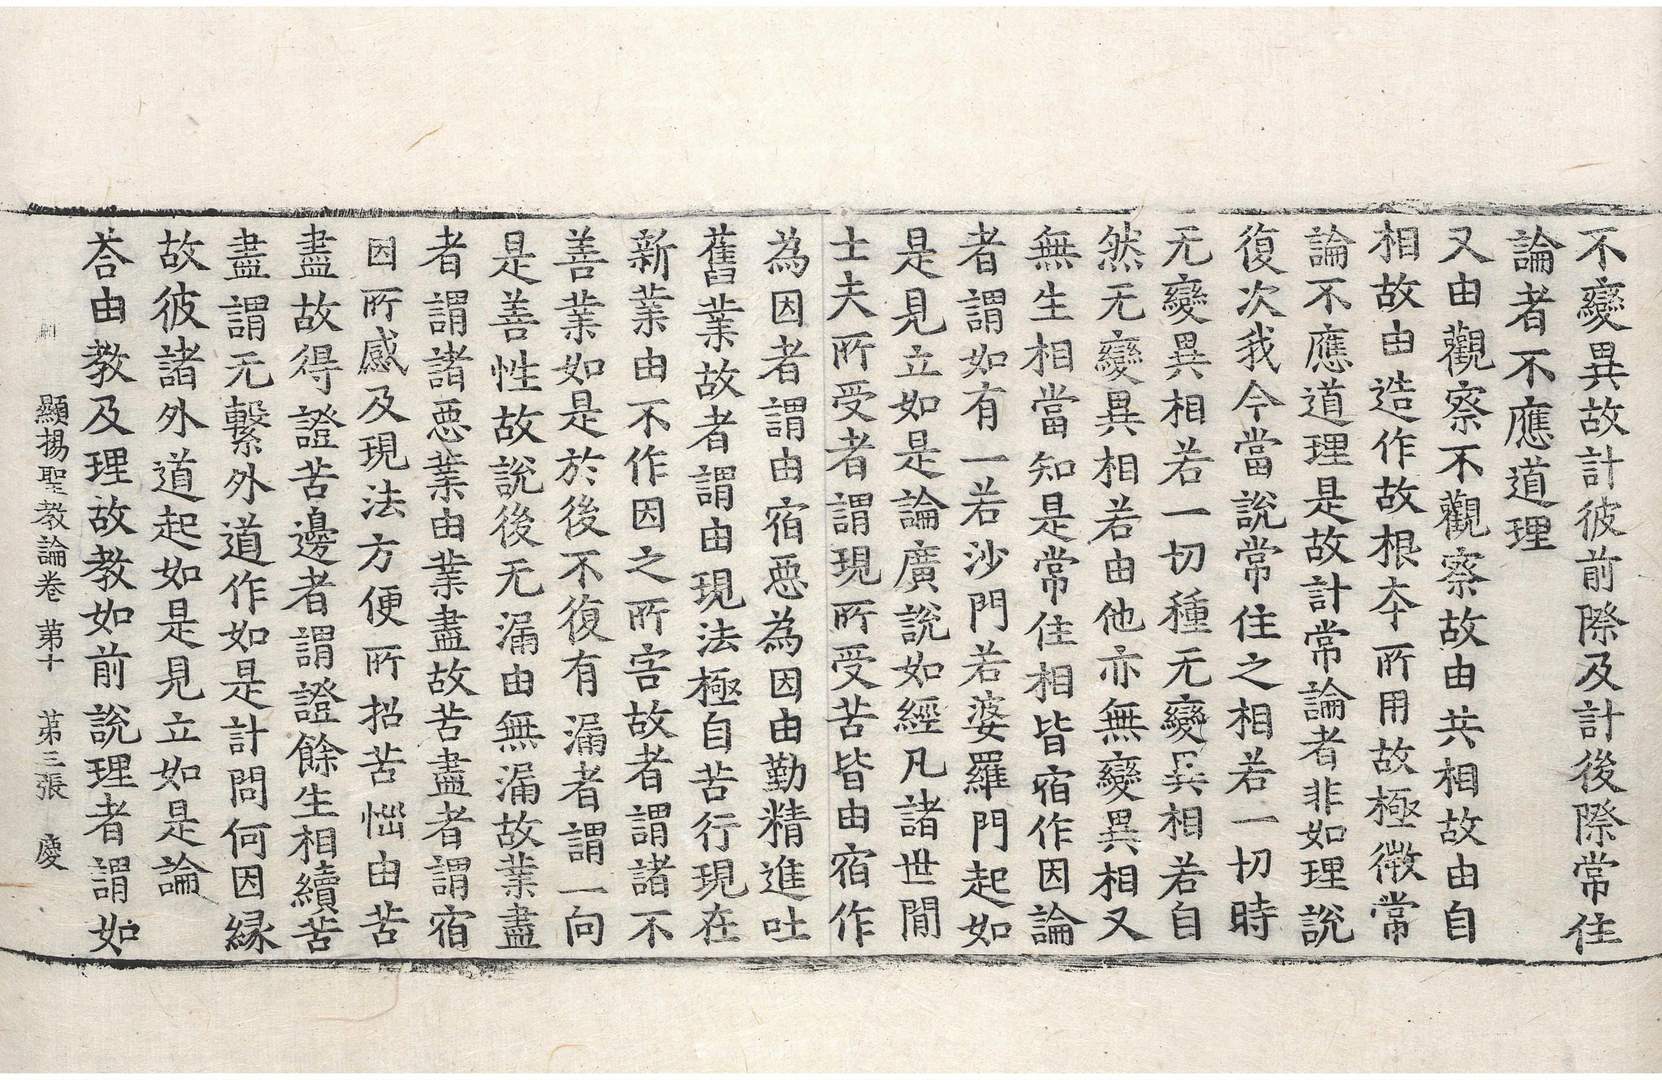 不變異故計彼前際及計後際常住
論者不應道理
又由觀察不觀察故由共相故由自
相故由造作故根本所用故極微常
論不應道理是故計常論者非如理說
復次我今當說常住之相若一切時
无變異相若一切種无變異相若自
然无變異相若由他亦無變異相又
無生相當知是常住相皆宿作因論
者謂如有一若沙門若婆羅門起如
是見立如是論廣說如經凡諸世間
士夫所受者謂現所受苦皆由宿作
為因者謂由宿惡為因由勤精進吐
舊業故者謂由現法極自苦行現在
新業由不作因之所害故者謂諸不
善業如是於後不復有漏者謂一向
是善性故說後无漏由無漏故業盡
者謂諸惡業由業盡故苦盡者謂宿
因所感及現法方便所招苦惱由苦
盡故得證苦邊者謂證餘生相續苦
盡謂无繫外道作如是計問何因縁
故彼諸外道起如是見立如是論
荅由教及理故教如前說理者謂如
顯揚聖教論卷第十 第三張 慶